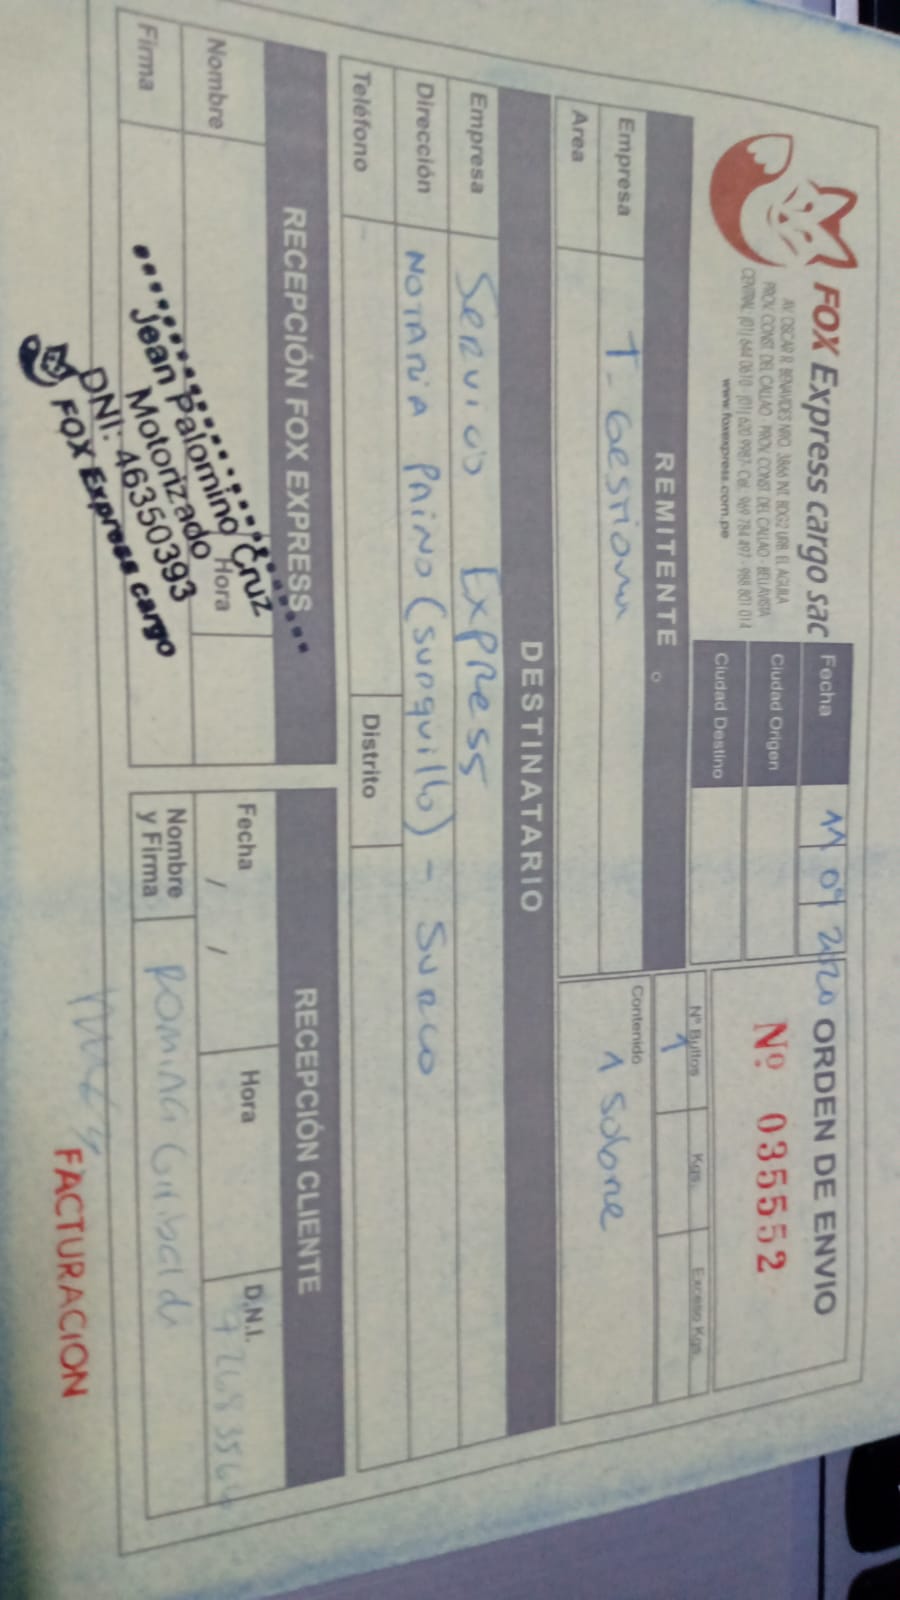 FOX Express cargo sac
AV. OSCAR R. BENAVIDES NRO. 3866 INT. BDG2 URB. EL AGUILA
PROV. CONST. DEL CALLAO - PROV. CONST. DEL CALLAO - BELLAVISTA
CENTRAL: (01) 644 0610 - (01) 620 9987 - Cel. 969 784 497 - 988 801 014
www.foxexpress.com.pe
Fecha 11 09 2020
Ciudad Origen
Ciudad Destino
ORDEN DE ENVIO
Nº 035552
REMITENTE
Empresa T-Gestiona
Area
Nº Bultos Kgs. Exceso Kgs.
1
Contenido
1 Sobre
DESTINATARIO
Empresa Servicio Express
Dirección NOTARIA PAINO (Surquillo) - Surco
Teléfono - Distrito
RECEPCIÓN FOX EXPRESS
Nombre Hora
Firma
Jean Palomino Cruz
Motorizado
DNI: 46350393
FOX Express cargo
RECEPCIÓN CLIENTE
Fecha / / Hora D.N.I.
Nombre
y Firma ROMINA Giribaldi
FACTURACION